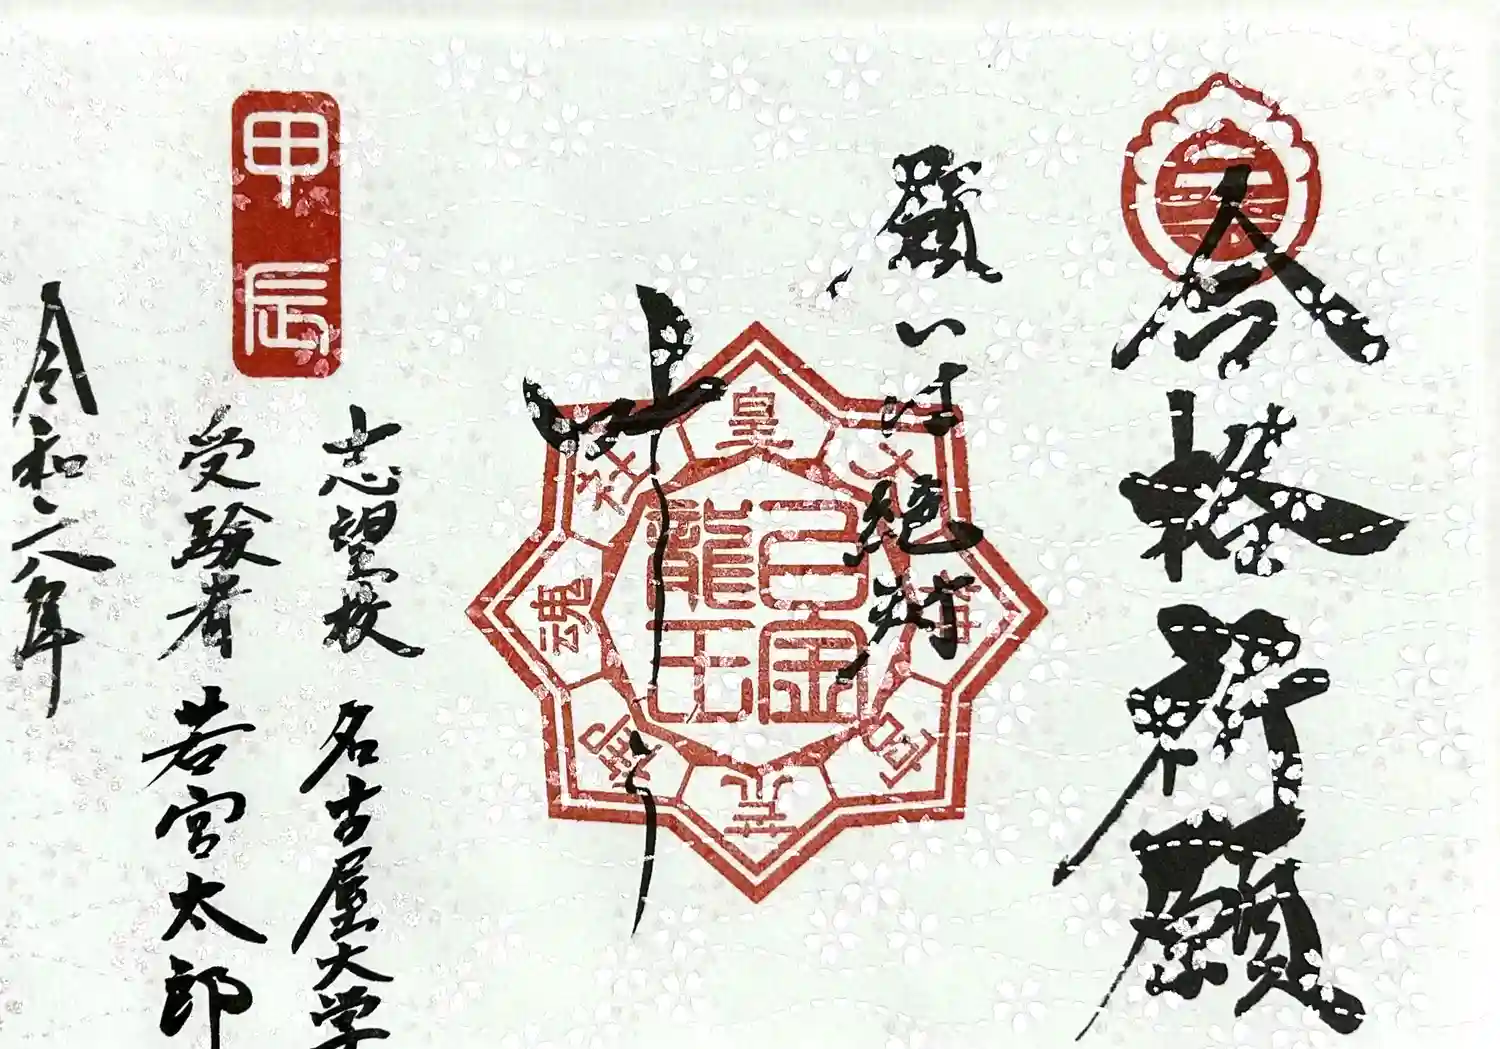 合格祈願
願いは絶対
叶
白金
龍王
皇
魂
甲辰
志望校 名古屋大学
受験者 若宮太郎
令和六年